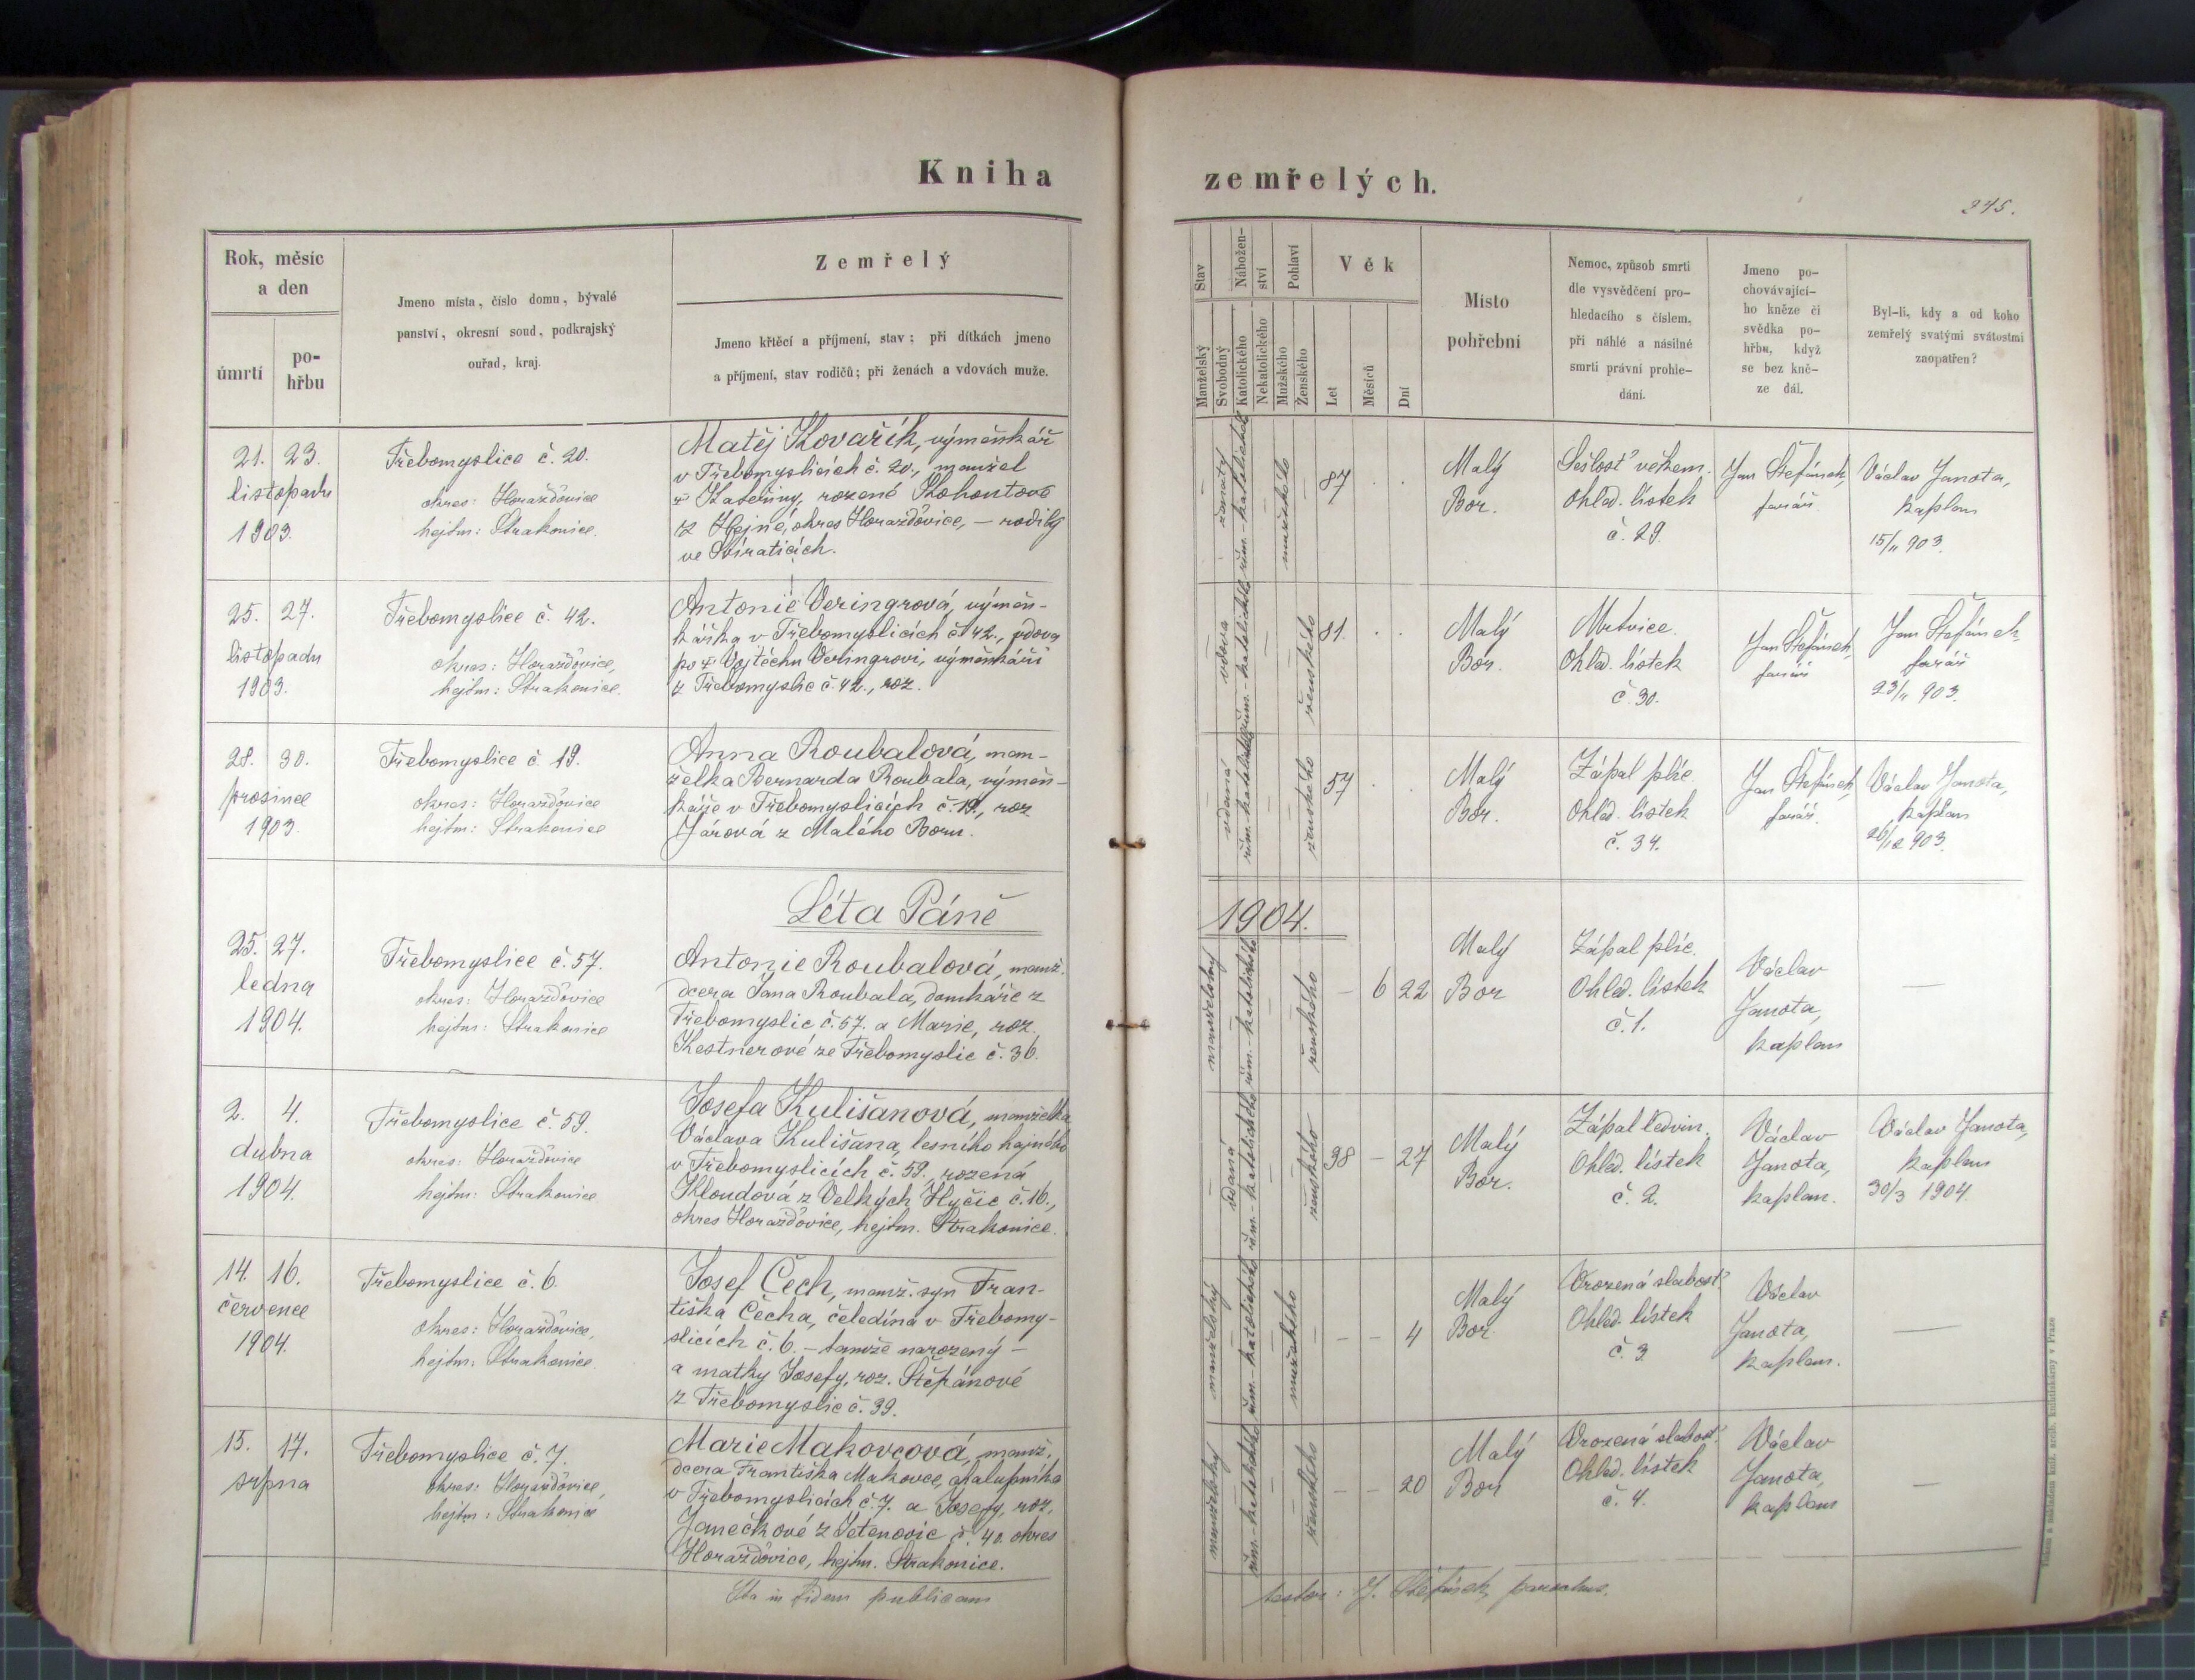 Kniha zemřelých.
245.
Rok, měsíc
a den
úmrtí
po-
hřbu
Jmeno místa, číslo domu, bývalé
panství, okresní soud, podkrajský
ouřad, kraj.
Zemřelý
Jmeno křtěcí a příjmení, stav; při dítkách jmeno
a příjmení, stav rodičů; při ženách a vdovách muže.
Stav
Manželský
Svobodný
Nábožen-
ství
Katolického
Nekatolického
Pohlaví
Mužského
Ženského
Věk
Let
Měsíců
Dní
Místo
pohřební
Nemoc, způsob smrti
dle vysvědčení pro-
hledacího s číslem,
při náhlé a násilné
smrti právní prohle-
dání.
Jmeno po-
chovávající-
ho kněze či
svědka po-
hřbu, když
se bez kně-
ze dál.
Byl-li, kdy a od koho
zemřelý svatými svátostmi
zaopatřen?
21. 23.
listopadu
1903.
Třebomyslice č. 20.
okres: Horažďovice
hejtm: Strakonice.
Matěj Kovařík, výměnkář
v Třebomyslicích č. 20., manžel
† Kateřiny, rozené Kohoutové
z Hejné, okres Horažďovice, – rodilý
ve
ženatý
řím.-katolického
mužského
87
Malý
Bor.
Sešlosť věkem.
Ohled. lístek
č. 29.
Jan Štefánek,
farář.
Václav Janota,
kaplan
15/11 903.
25. 27.
listopadu
1903.
Třebomyslice č. 42.
okres: Horažďovice,
hejtm: Strakonice.
Antonie Veringrová, výměn-
kářka v Třebomyslicích č. 42., vdova
po † Vojtěchu Veringrovi, výměnkáři
z Třebomyslic č. 42., roz.
vdova
řím.-katolického
ženského
81.
Malý
Bor.
Mrtvice.
Ohled. lístek
č. 30.
Jan Štefánek,
farář
Jan Štefánek
farář
23/11 903.
28. 30.
prosince
1903.
Třebomyslice č. 19.
okres: Horažďovice
hejtm: Strakonice
Anna Roubalová, man-
želka Bernarda Roubala, výměn-
káře v Třebomyslicích č. 19., roz
Járová z Malého Boru.
vdaná
řím.-katolického
ženského
57
Malý
Bor.
Zápal plic
Ohled. lístek
č. 34.
Jan Štefánek,
farář.
Václav Janota,
kaplan
26/12 903.
Léta Páně 1904.
25. 27.
ledna
1904.
Třebomyslice č. 57.
okres: Horažďovice
hejtm: Strakonice
Antonie Roubalová, manž.
dcera Jana Roubala, domkáře z
Třebomyslic č. 57. a Marie, roz.
Kestnerové ze Třebomyslic č. 36.
manželský
řím.-katolického
ženského
– 6 22
Malý
Bor
Zápal plic.
Ohled. lístek
č. 1.
Václav
Janota,
kaplan
—
2. 4.
dubna
1904.
Třebomyslice č. 59.
okres: Horažďovice
hejtm: Strakonice
Josefa Kulišanová, manželka
Václava Kulišana, lesního hajného
v Třebomyslicích č. 59., rozená
Kloudová z Velkých Hyčic č. 16.,
okres Horažďovice, hejtm. Strakonice.
vdaná
řím.-katolického
ženského
38 – 27
Malý
Bor.
Zápal ledvin.
Ohled. lístek
č. 2.
Václav
Janota,
kaplan.
Václav Janota,
kaplan
30/3 1904
14. 16.
července
1904.
Třebomyslice č. 6.
okres: Horažďovice,
hejtm: Strakonice.
Josef Čech, manž. syn Fran-
tiška Čecha, čeledína v Třebomy-
slicích č. 6. – tamže narozený –
a matky Josefy, roz. Štěpánové
z Třebomyslic č. 39.
manželský
řím.-katolického
mužského
– – 4
Malý
Bor
Vrozená slabosť.
Ohled. lístek
č. 3.
Václav
Janota,
kaplan.
—
15. 17.
srpna
Třebomyslice č. 7.
okres: Horažďovice,
hejtm: Strakonice
Marie Makovcová, manž.
dcera Františka Makovce, chalupníka
v Třebomyslicích č. 7. a Josefy, roz.
Janečkové z Letenovic č. 40. okres
Horažďovice, hejtm. Strakonice.
manželský
řím.-katolického
ženského
– – 20
Malý
Bor
Vrozená slabosť.
Ohled. lístek
č. 4.
Václav
Janota,
kaplan
—
Ita in fidem publicam testor: J. Štefánek, parochus.